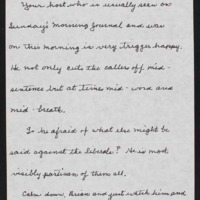 Your host who is usually seen on
Sunday's Morning Journal and was
on this morning is very trigger happy.
He not only cuts the callers off mid-
sentence but at times mid-word and
mid-breath.
Is he afraid of what else might be
said against the liberals? He is most
visibly partisan of them all.
Calm down, Brian and just watch him and